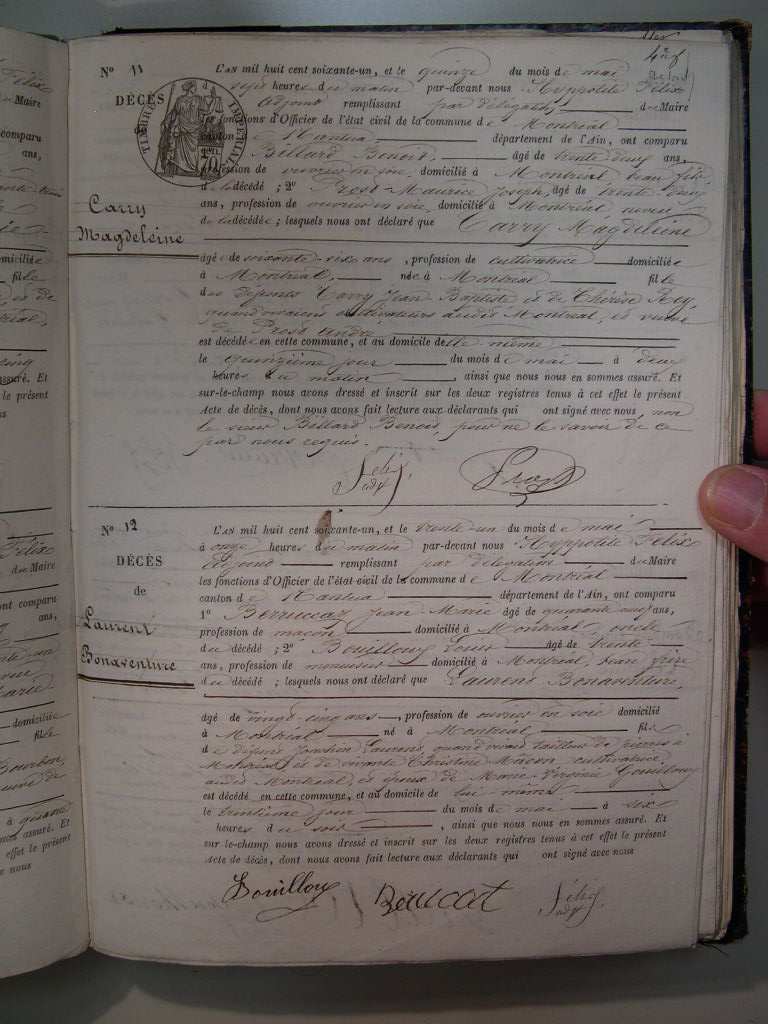 4è f
N° 11
DÉCÈS
de
TIMBRE IMPÉRIAL
70
Carry
Magdeleine
L'AN mil huit cent soixante-un, et le quinze du mois de mai
sept heures du matin par-devant nous Hyppolite Félix
Adjoint remplissant par délégation du Maire
les fonctions d'Officier de l'état civil de la commune de Montréal
canton de Nantua département de l'Ain, ont comparu
Billard Benoit, âgé de trente deux ans,
profession de ouvrier en soie, domicilié à Montréal, beau fils
de la décédé ; 2° Prost-Maurice Joseph, âgé de trente deux
ans, profession de ouvrier en soie, domicilié à Montréal, neveu
de la décédée ; lesquels nous ont déclaré que Carry Magdeleine
âgée de soixante-six ans, profession de cultivatrice domiciliée
à Montréal, née à Montréal fille
des défunts Carry Jean Baptiste et de Thérèse Rey,
quand vivaient cultivateurs audit Montréal, et veuve
de Prost André
est décédée en cette commune, et au domicile d'elle même
le quinzième jour du mois de mai à deux
heures du matin, ainsi que nous nous en sommes assuré. Et
sur-le-champ nous avons dressé et inscrit sur les deux registres tenus à cet effet le présent
Acte de décès, dont nous avons fait lecture aux déclarants qui ont signé avec nous, non
le sieur Billard Benoit, pour ne le savoir de ce
par nous requis.
Félix adjt Prost
N° 12
DÉCÈS
de
Laurent
Bonaventure
L'AN mil huit cent soixante-un, et le trente-un du mois de mai
à onze heures du matin par-devant nous Hyppolite Félix
Adjoint remplissant par délégation du Maire
les fonctions d'Officier de l'état civil de la commune de Montréal
canton de Nantua département de l'Ain, ont comparu
1° Jean Marie âgé de quarante ans,
profession de maçon domicilié à Montréal, oncle
du décédé ; 2° Bouilloux Louis âgé de trente
ans, profession de menuisier domicilié à Montréal, beau frère
du décédé ; lesquels nous ont déclaré que Laurent Bonaventure,
âgé de vingt-cinq ans, profession de ouvrier en soie domicilié
à Montréal né à Montréal fils
de défunt Joachim Laurent, quand vivait tailleur de pierres à
Montréal et de vivante Christine Maçon, cultivatrice
audit Montréal, et époux de Marie Virginie Gouilloux
est décédé en cette commune, et au domicile de lui même
le trentième jour du mois de mai à six
heures du soir, ainsi que nous nous en sommes assuré. Et
sur-le-champ nous avons dressé et inscrit sur les deux registres tenus à cet effet le présent
Acte de décès, dont nous avons fait lecture aux déclarants qui ont signé avec nous
Bouilloux Félix adjt